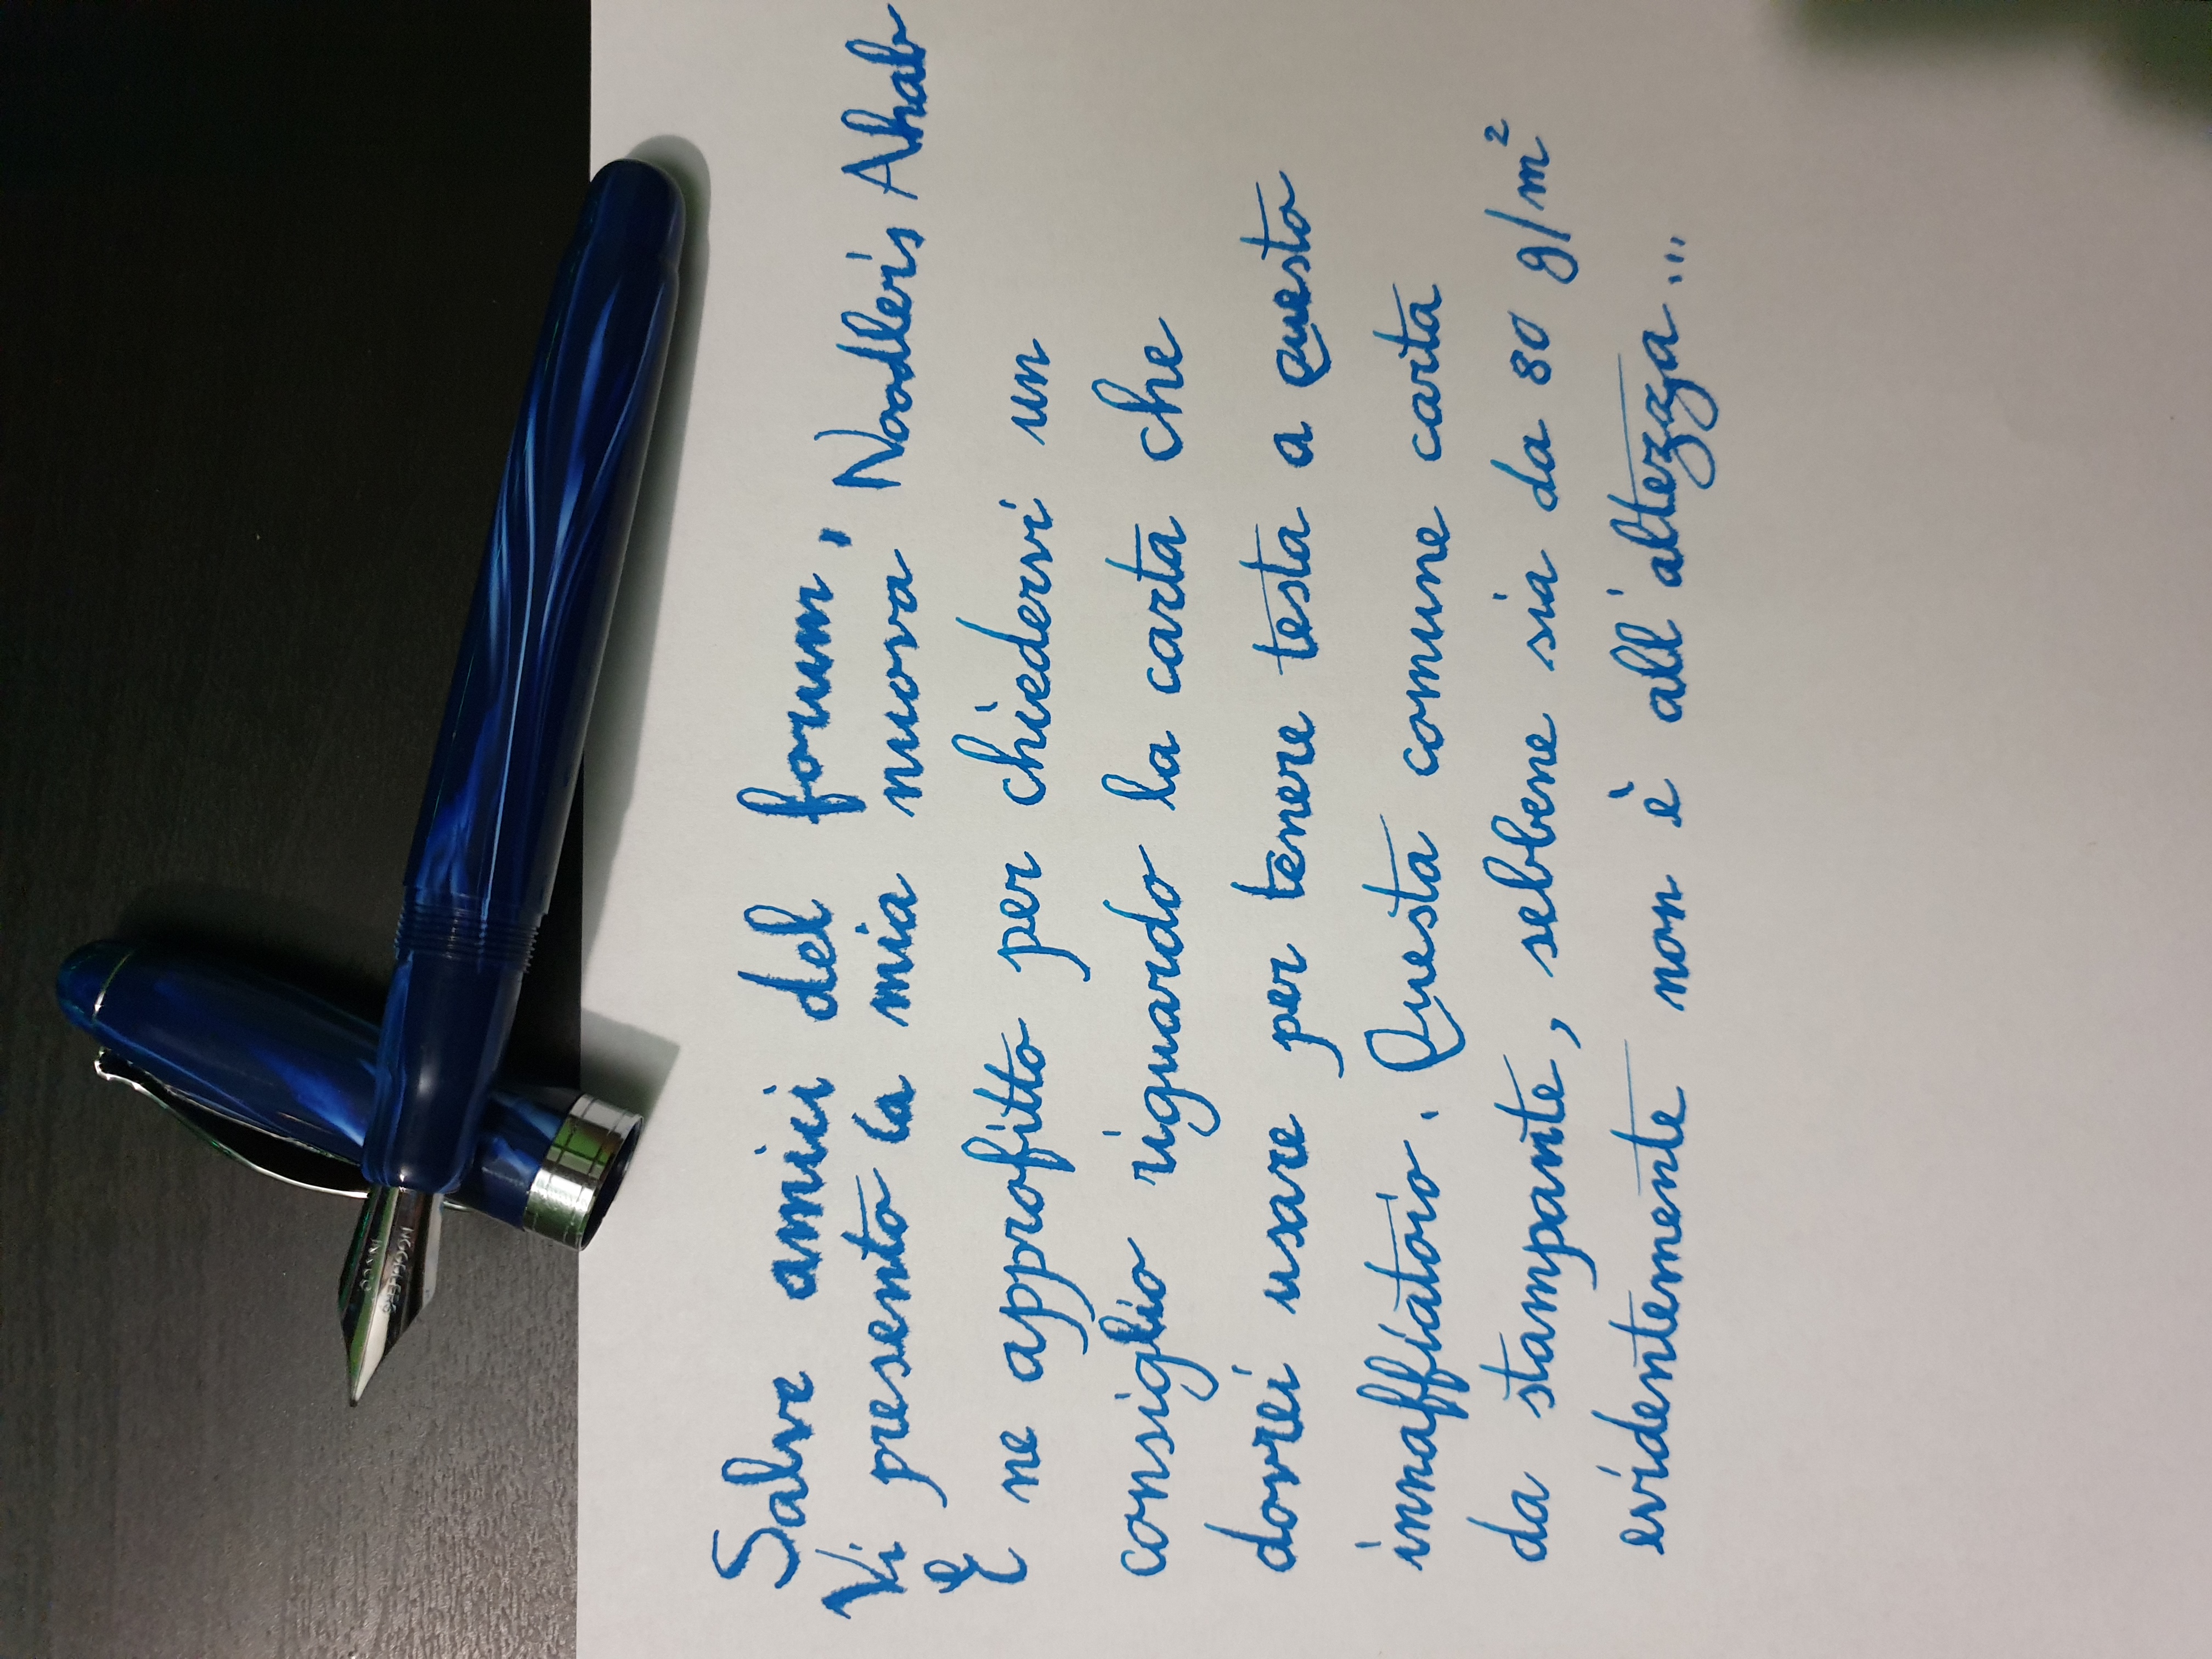 Salve amici del forum,
Vi presento la mia nuova Noodler's Ahab
E ne approfitto per chiedervi un
consiglio riguardo la carta che
dovrei usare per tenere testa a questo
innaffiatoio. Questa comune carta
da stampante, sebbene sia da 80 g/m²
evidentemente non è all'altezza...
NOODLER'S
INK CO